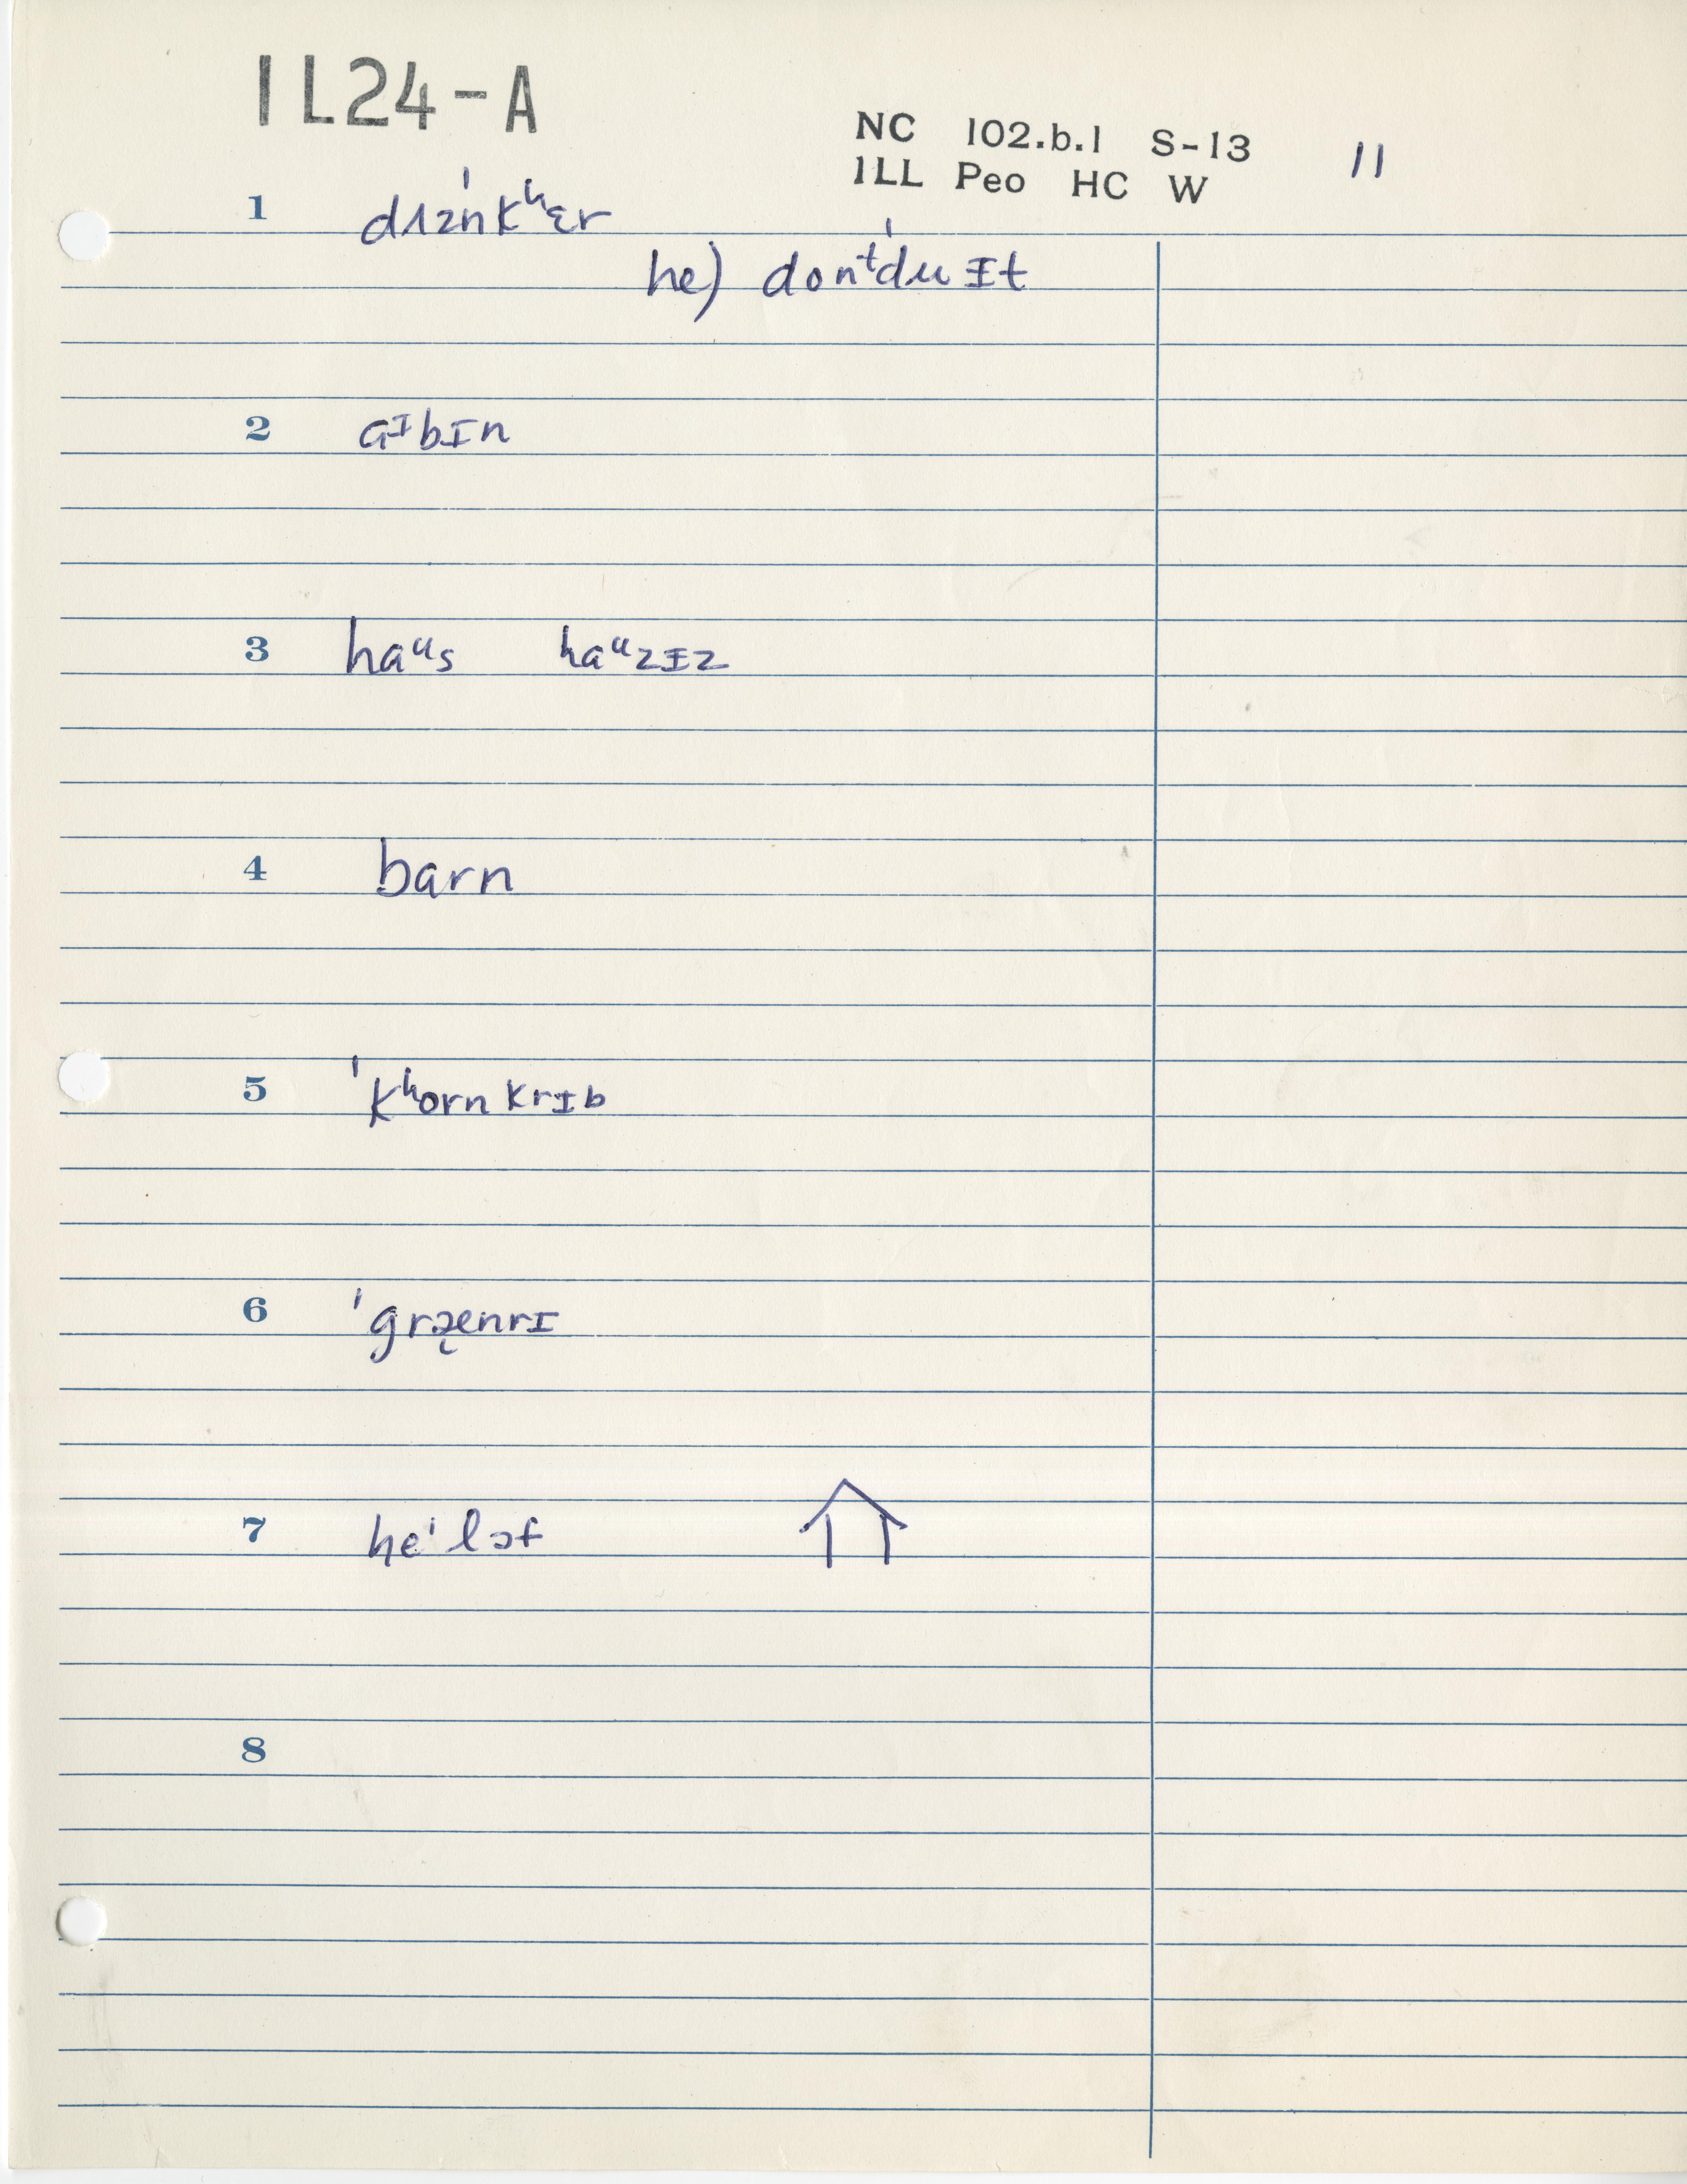 IL24-A
NC 102.b.1 S-13 11
ILL Peo HC W
1 dʌzn̍kʰɛr
he) donᵗˈdu ɪt
2 aᶦbɪn
3 haᵘs haᵘzɪz
4 barn
5 ˈkʰornkrɪb
6 ˈgræ̨nrɪ
7 heˈlɔf
8